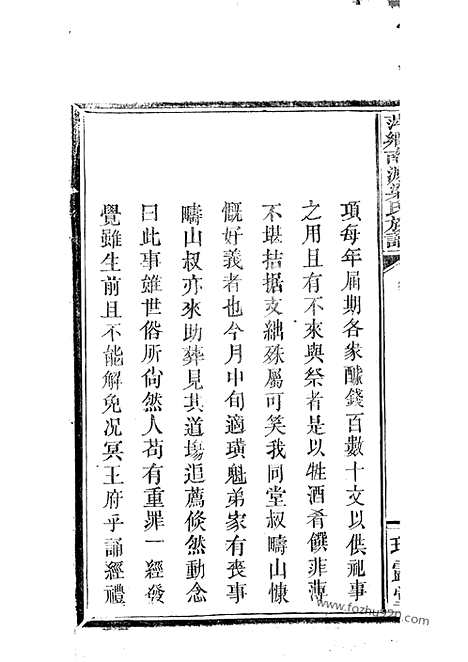 項每年屆期各家醵錢百數十文以供祀事
之用且有不來與祭者是以牲酒肴饌菲薄
不堪拮据支絀殊屬可笑我同堂叔疇山慷
慨好義者也今月中旬適璜魁弟家有喪事
疇山叔亦來助葬見其道場追薦倏然動念
曰此事雖世俗所尙然人苟有重罪一經發
覺雖生前且不能解免况冥王府乎誦經禮
www.fozhu920.com